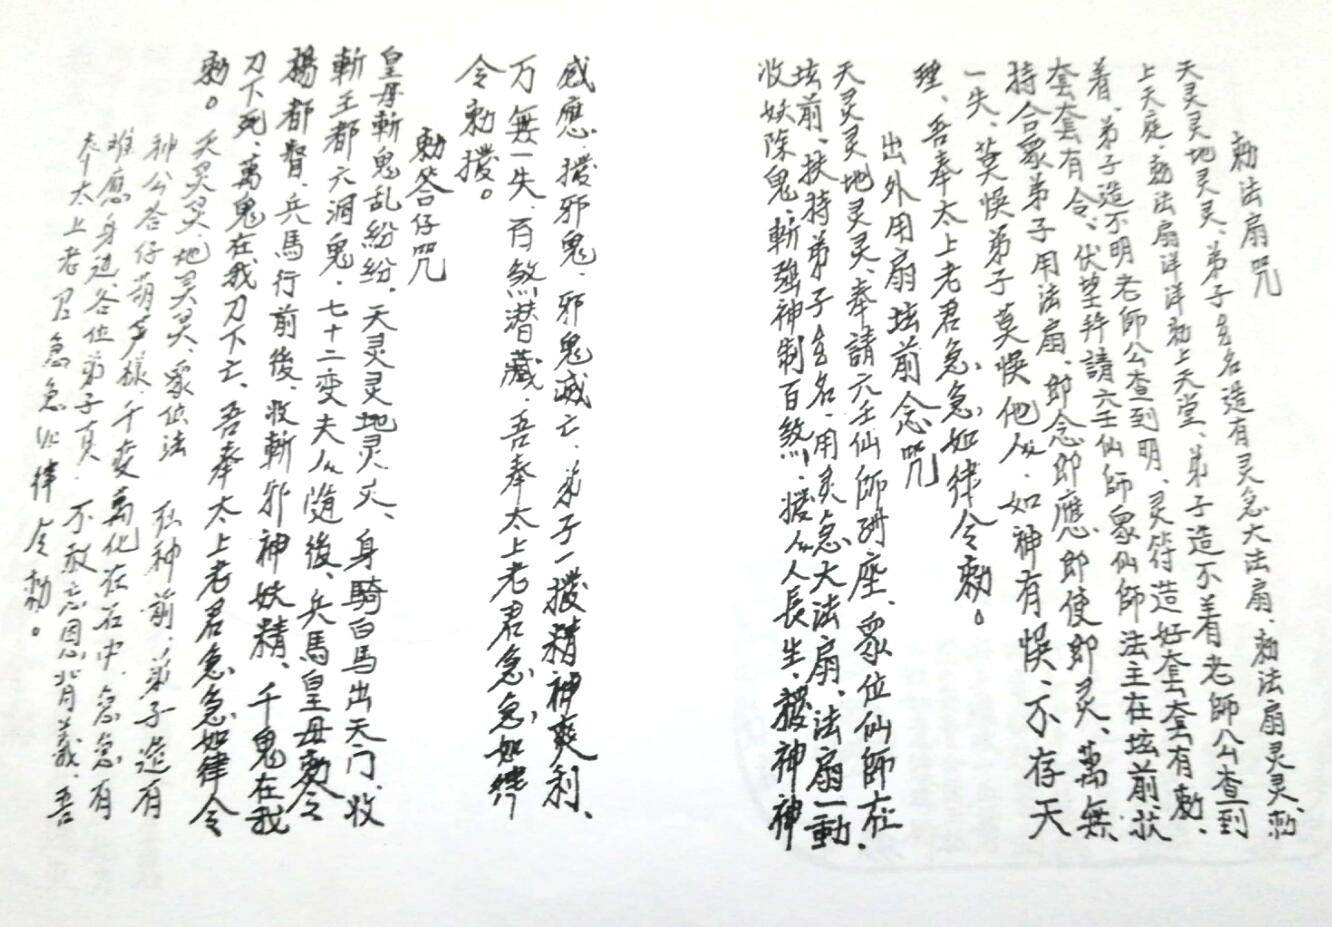 勅法扇咒
天灵灵地灵灵、弟子名造有灵急大法扇、勅法扇灵灵、勅
上天庭、勅法扇洋洋勅上天堂、弟子造不着老師公查到
着、弟子造不明老師公查到明、灵符造好套套有勅、
套套有令、伏望拜請六壬仙師衆仙師法主在坛前扶
持合衆弟子用法扇、即念即應、即使即灵、萬無
一失、莫悮弟子莫悮他人、如神有悮、不存天
理、吾奉太上老君急急如律令勅。
出外用扇坛前念咒
天灵灵地灵灵、奉請六壬仙師座、衆位仙師在
坛前、扶持弟子名、用灵急大法扇、法扇一動、
收妖除鬼、斬強神制百煞、撥人人長生、撥神神
感應、撥邪鬼、邪鬼滅亡、弟子一撥精神爽利、
万無一失、百煞潜藏、吾奉太上老君急急如律
令勅撥。
勅答仔咒
皇母斬鬼乱紛紛、天灵灵地灵灵、身騎白馬出天门、收
斬王都六洞鬼、七十二変夫人隨後、兵馬皇母勅令
楊都督、兵馬行前後、收斬邪神妖精、千鬼在我
刀下死、萬鬼在我刀下亡、吾奉太上老君急急如律令
勅。 天灵灵、地灵灵、衆位法 神前、弟子造有
神公答仔葫芦様、千変萬化在石中、急急有
难應身边、各位弟子真、不敢忘恩背義、吾
奉太上老君急急如律令勅。